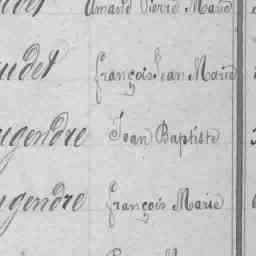 Amand Pierre Marie
udet François Jean Marie
ugendre Jean Baptiste
ugendre François Marie